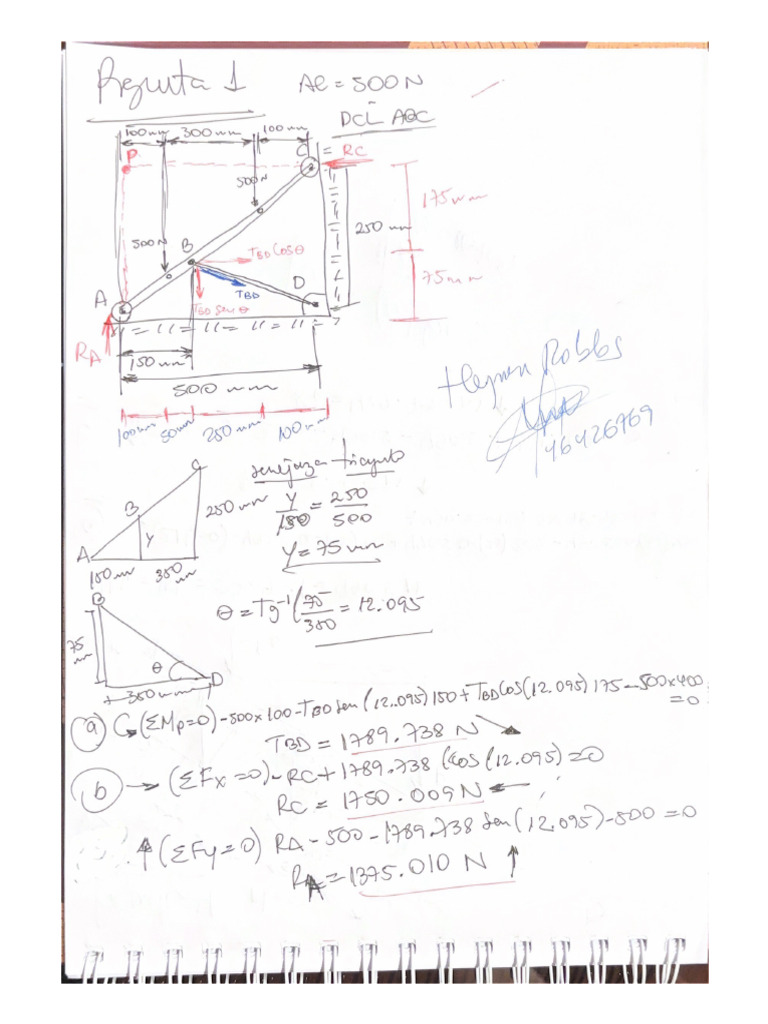 Pregunta 1
Al = 500 N
DCL ABC
100mm 300mm 100mm
P
C
RC
500N
175mm
250 mm
500N
B
TBD COSθ
TBD
D
75mm
A
TBD senθ
RA
150mm
500 mm
100mm 50mm 250mm 100mm
46426769
semejanza triangulo
C
B
y
A
250mm
150mm 350mm
y/150 = 250/500
y = 75mm
B
75mm
θ
D
350mm
θ = Tg⁻¹(75/350 = 12.095
a) (ΣMp=0) -500x100-TBD sen(12.095)150+TBD Cos(12.095)175-500x400 =0
TBD = 1789.738 N
b → (ΣFx=0) -RC+1789.738 (Cos(12.095)=0
RC = 1750.009 N ←
↑(ΣFy=0) RA-500-1789.738 sen(12.095)-500=0
RA = 1375.010 N ↑